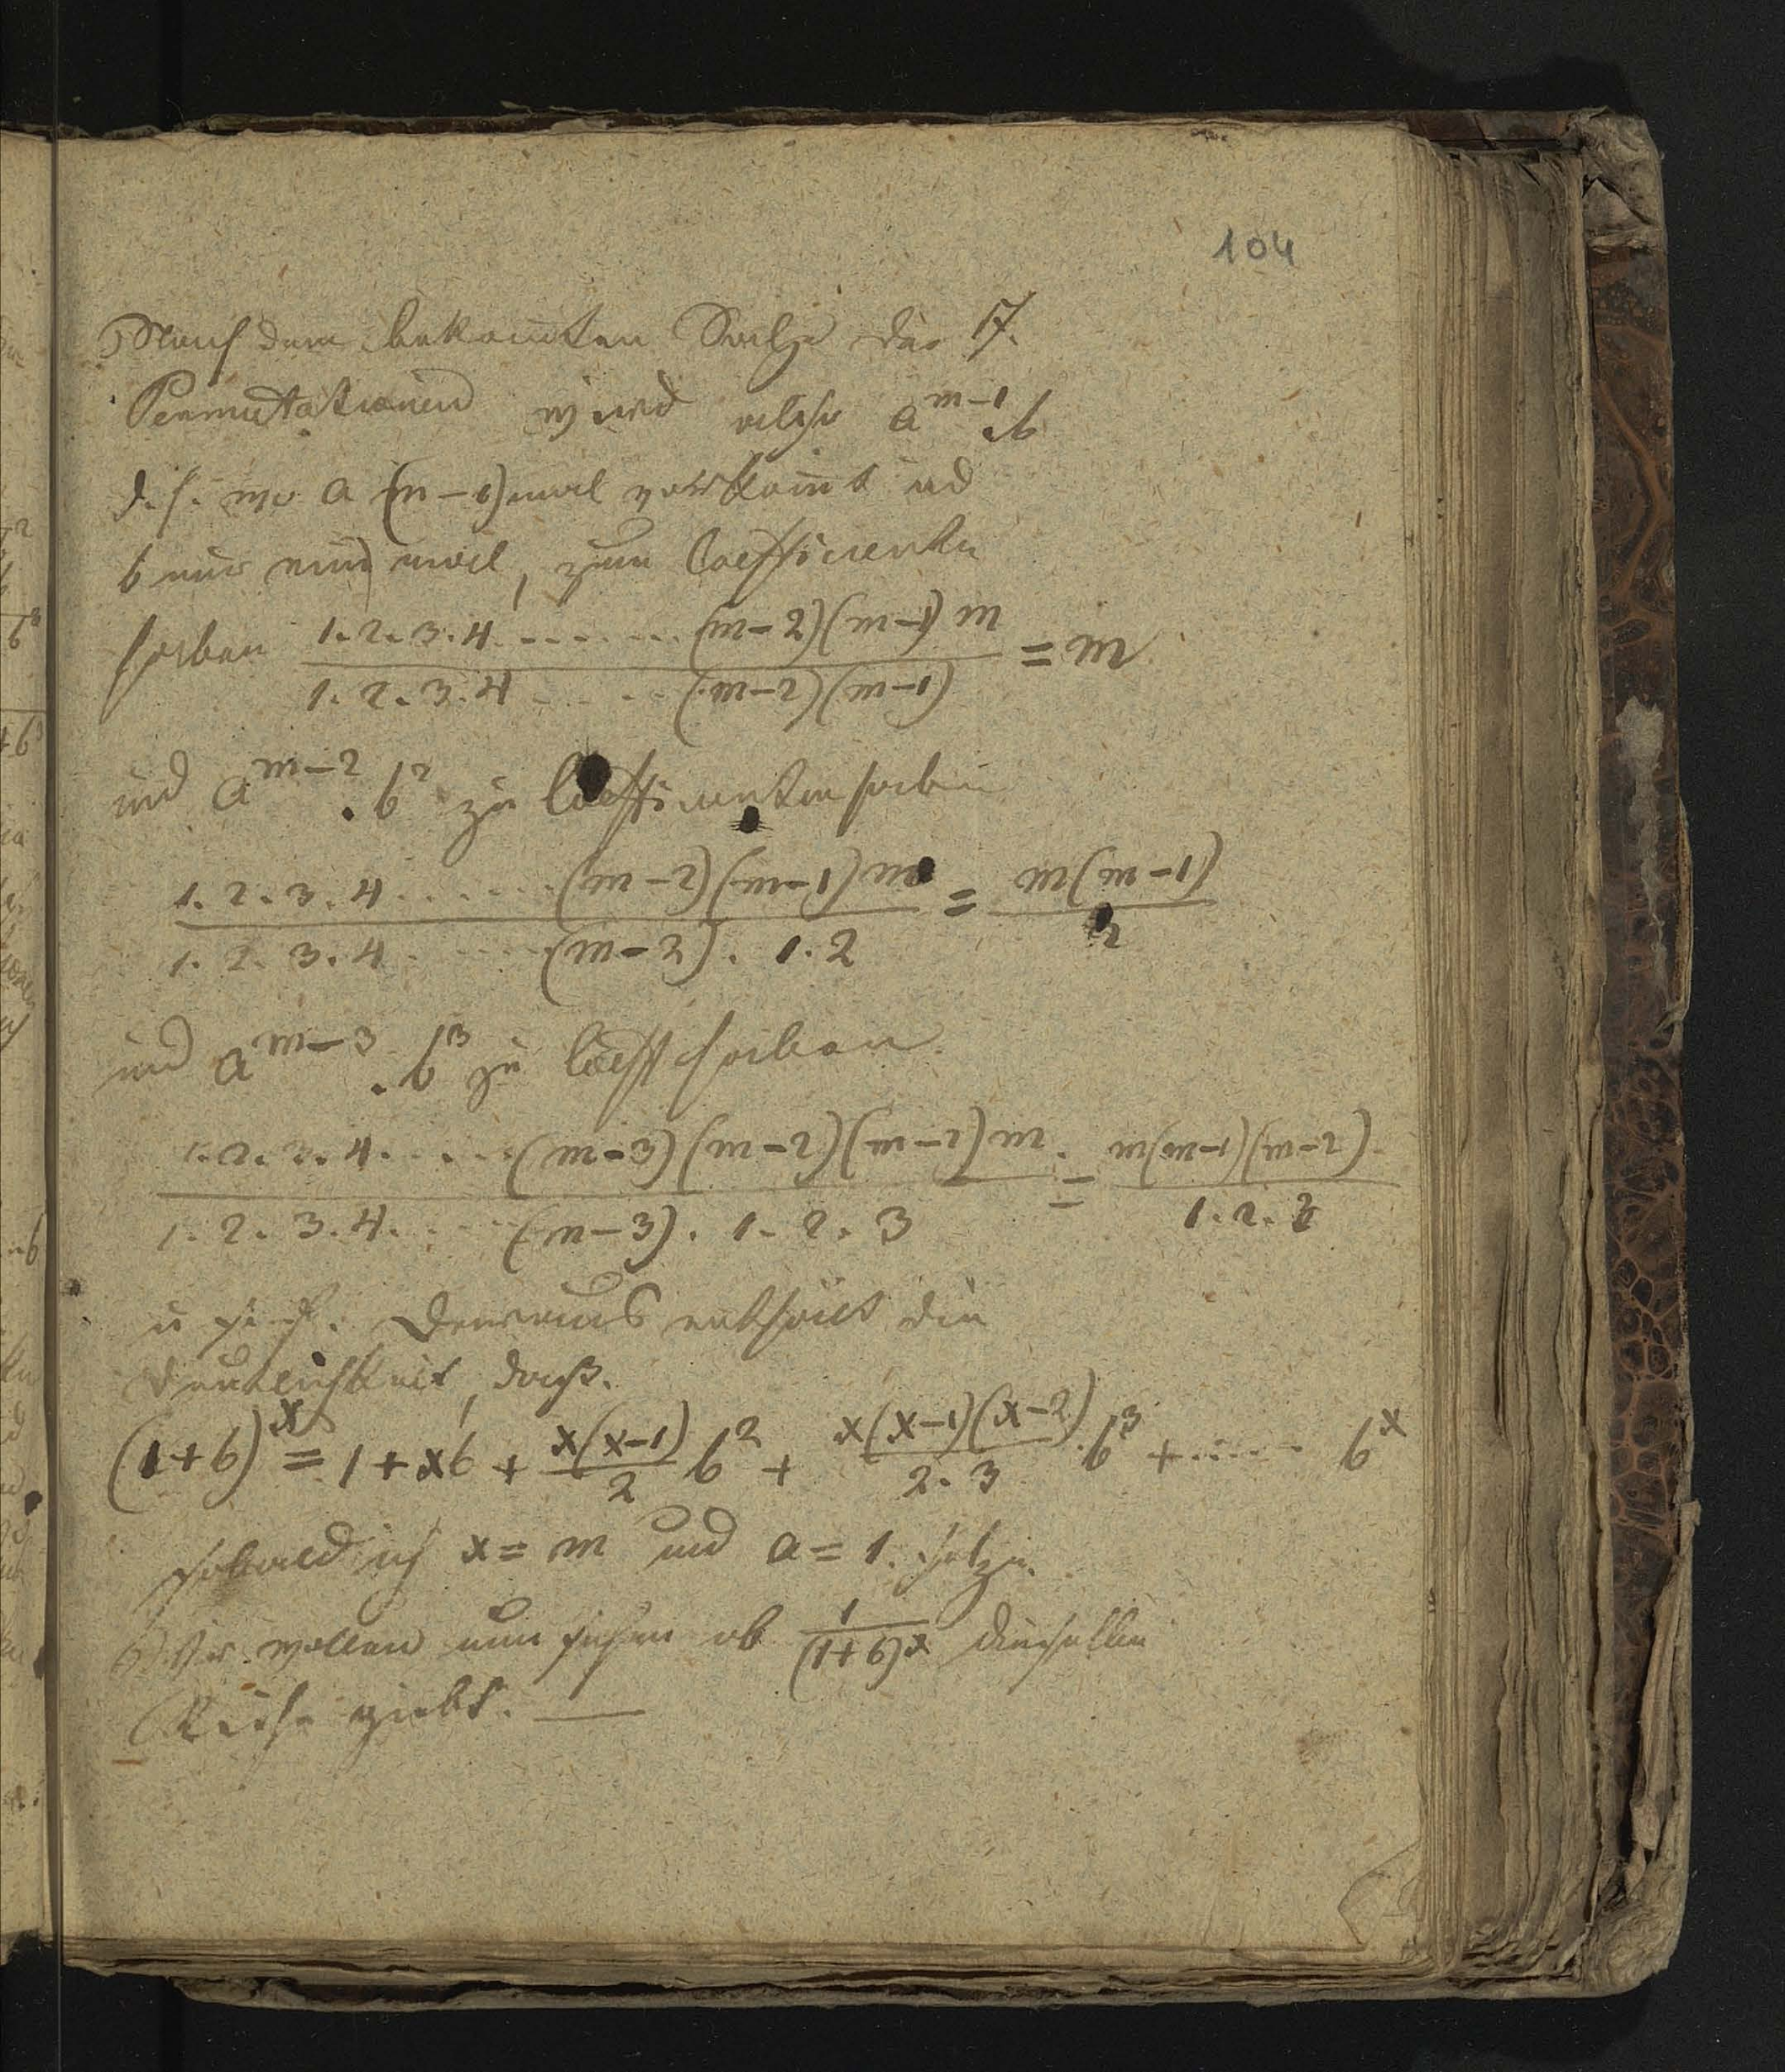 104
Nach dem bekannten Satze der 17.
Permutationen wird also a^{m-1}.b
d. h. wo a (m-1) mal vorkom̄t und
b nur ein mal, zum Coefficienten
haben \frac{1.2.3.4.......(m-2)(m-1)m}{1.2.3.4.....(m-2)(m-1)} = m
und a^{m-2}.b^2 zu Coefficienten haben
\frac{1.2.3.4.....(m-2)(m-1)m}{1.2.3.4.....(m-2).1.2} = \frac{m(m-1)}{2}
und a^{m-3}.b^3 zu Coeff haben
\frac{1.2.3.4.....(m-3)(m-2)(m-1)m}{1.2.3.4.....(m-3).1.2.3} = \frac{m(m-1)(m-2)}{1.2.3}
u s. f. Daraus erhält die
Deutlichkeit, daß.
(1+b)^x = 1+xb+\frac{x(x-1)}{2}b^2+\frac{x(x-1)(x-2)}{2.3}.b^3+..... b^x
sobald ich x = m und a = 1. setze.
Wir wollen nun sehen ob \frac{1}{(1+b)^x} dieselbe
Reihe giebt. —